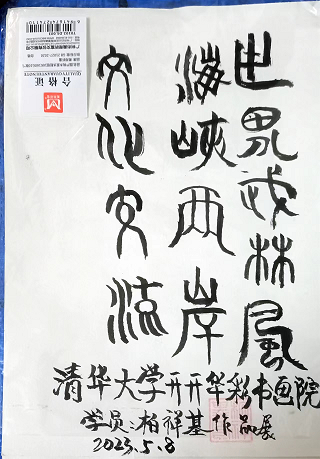 世界武林風
海峽两岸
文化交流
清华大学开开华彩书画院
学员:柏祥基作品展
2023.5.8
合格证